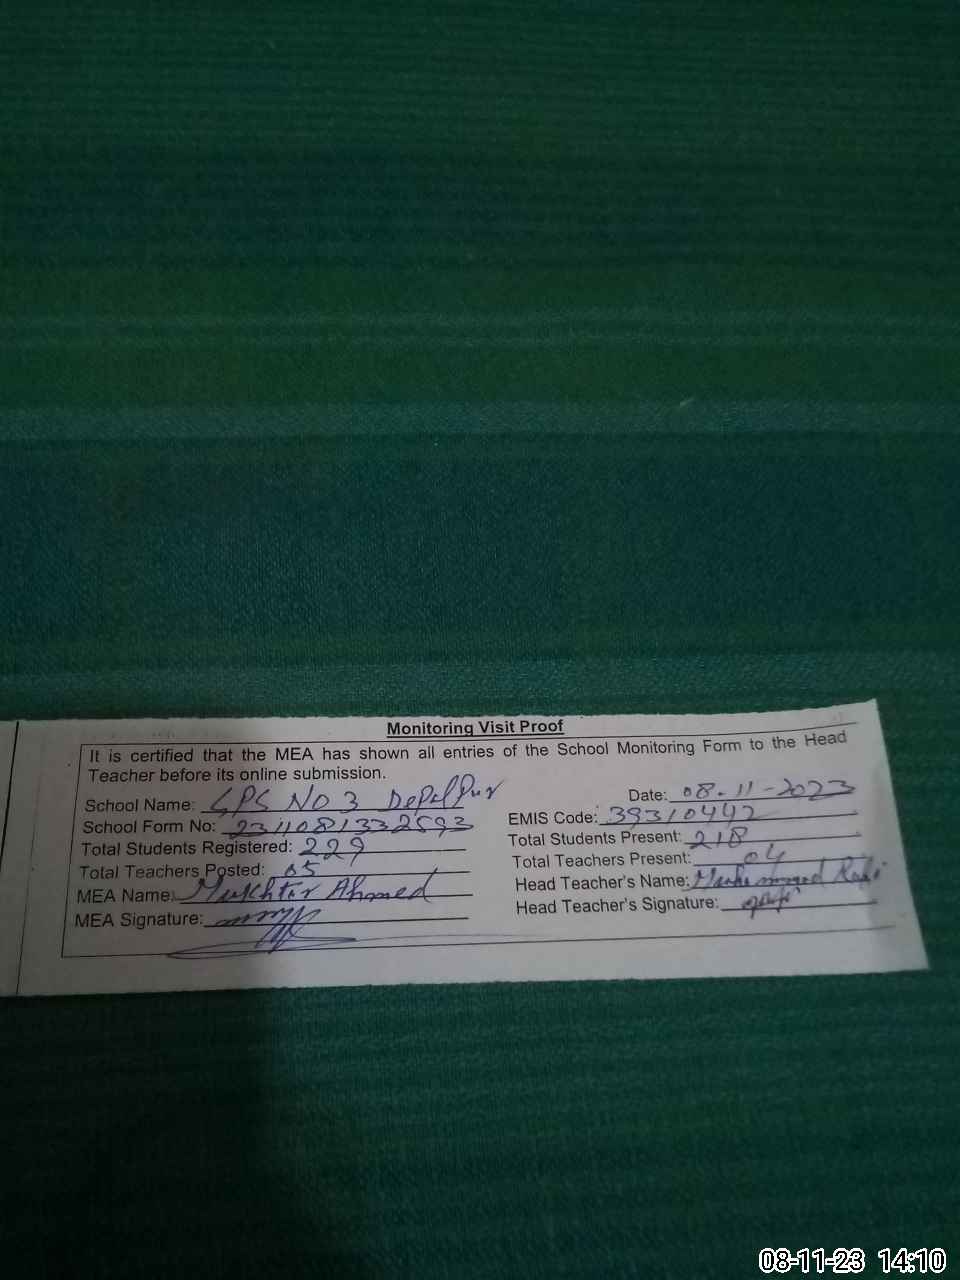 Monitoring Visit Proof
It is certified that the MEA has shown all entries of the School Monitoring Form to the Head
Teacher before its online submission.
School Name: GPS NO 3 DepalPur Date: 08-11-2023
School Form No: 2311081332593 EMIS Code: 39310442
Total Students Registered: 229 Total Students Present: 218
Total Teachers Posted: 05 Total Teachers Present: 04
MEA Name: Mukhtar Ahmed Head Teacher's Name: Muhammad
MEA Signature: Head Teacher's Signature:
08-11-23 14:10